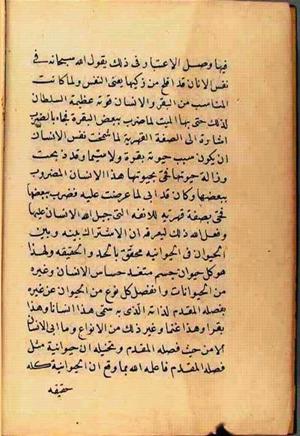 فيها وصل الاعتبار في ذلك يقول الله سبحانه في
نفس الانسان قد افلح من زكيها يعنى النفس ولما كانت
المناسب من البقر والانسان قوة عظيمة السلطان
لذلك حتى بها الميت لما ضرب ببعض البقرة فجاء بالضرب
اشارة الى الصفة القهرية لما شمخت نفس الانسان
ان يكون سبب حيوته بقرة ولا سيما وقد ذبحت
وزالت حيوتها فحى بحيوتها هذا الانسان المضروب
ببعضها وكان قد ابى لما عرضت عليه فضرب ببعضها
فحى بصفة قهرية للانفة التى جبل الله الانسان عليها
وفعل الله ذلك ليعرفه ان الاشتراك بينه وبين
الحيوان في الحيوانية محقق بالحد والحقيقة ولهذا
هو كل حيوان جسم متغذ حساس الانسان وغيره
من الحيوانات وانفصل كل نوع من الحيوان عن غيره
بفصله المقدم لذاته الذى به سمى هذا انسانا وهذا
بقرا وهذا غنما وغير ذلك من الانواع وما ابى الانسان
الا من حيث فصله المقدم وتخيله ان حيوانية مثل
فصله المقدم فاعلمه الله بما وقع ان الحيوانية كله
حقيقه